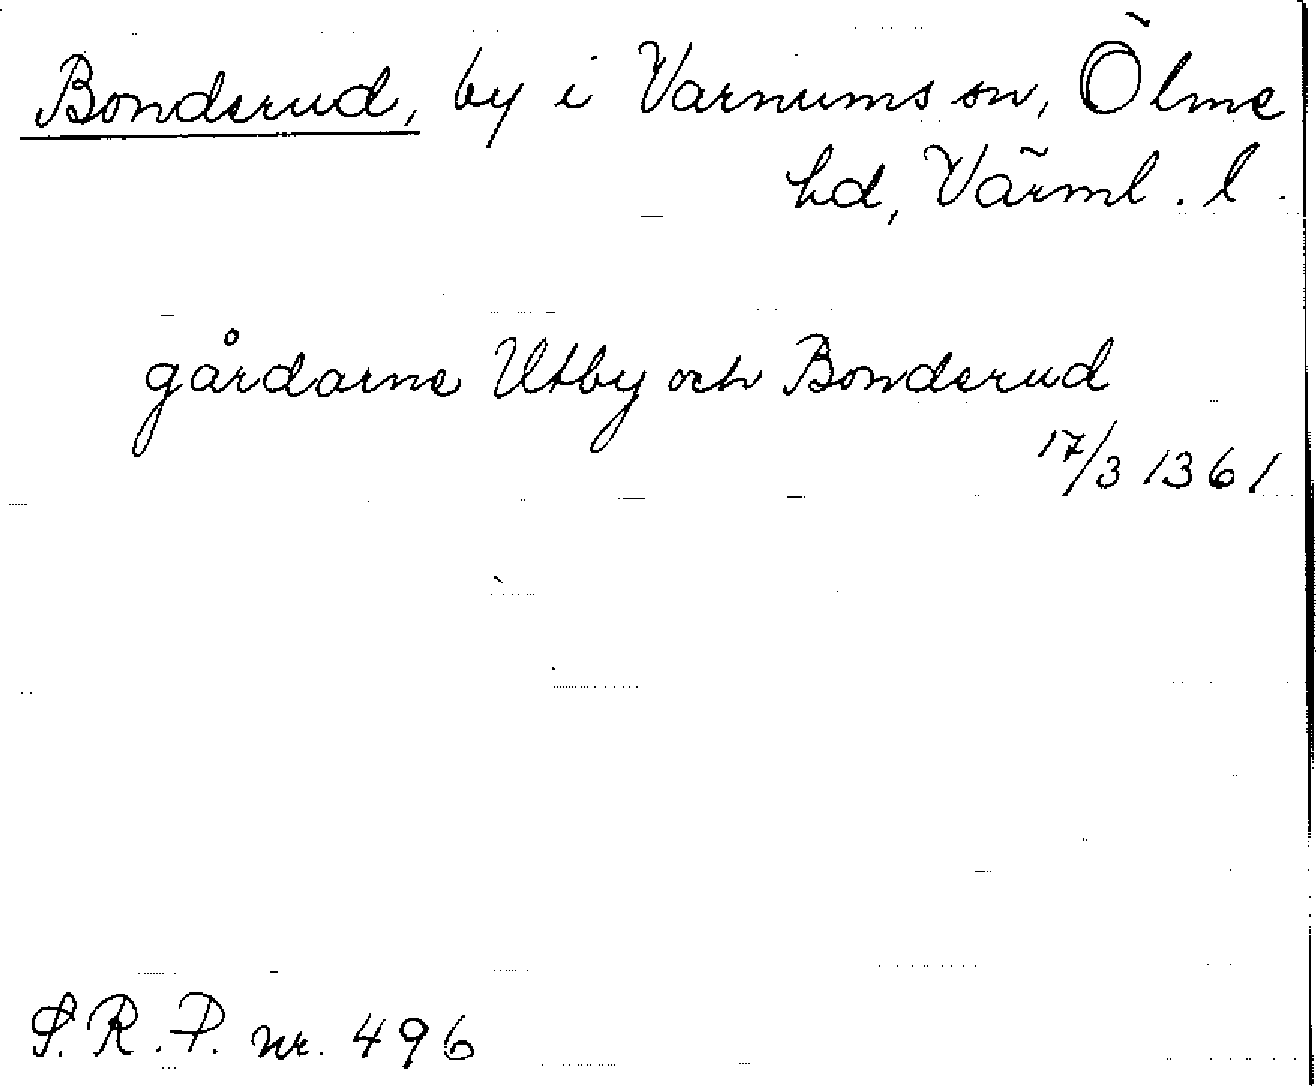 Bonderud, by i Varnums sn, Ölme
hd, Värml. l.
gårdarne Utby och Bonderud
17/3 1361
S.R.P. nr. 496